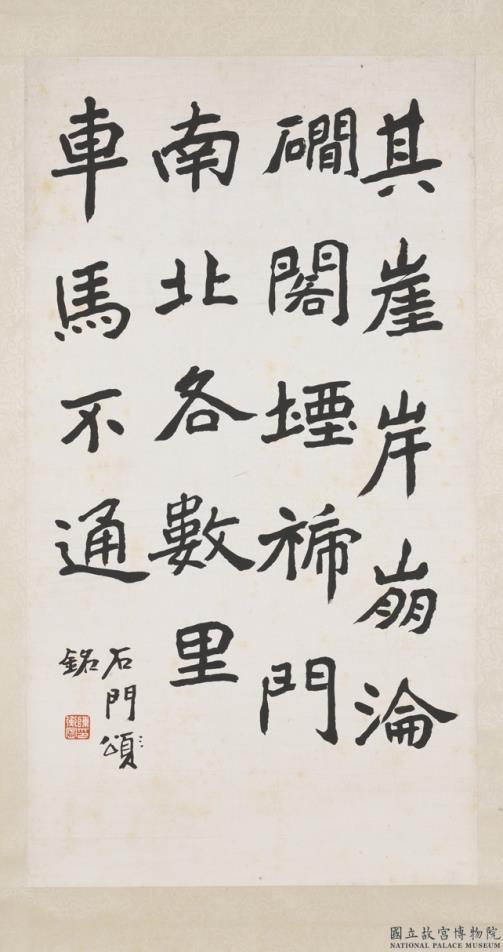 其崖岸崩淪
磵閣堙禘門
南北各數里
車馬不通
石門頌
銘
國立故宮博物院
NATIONAL PALACE MUSEUM